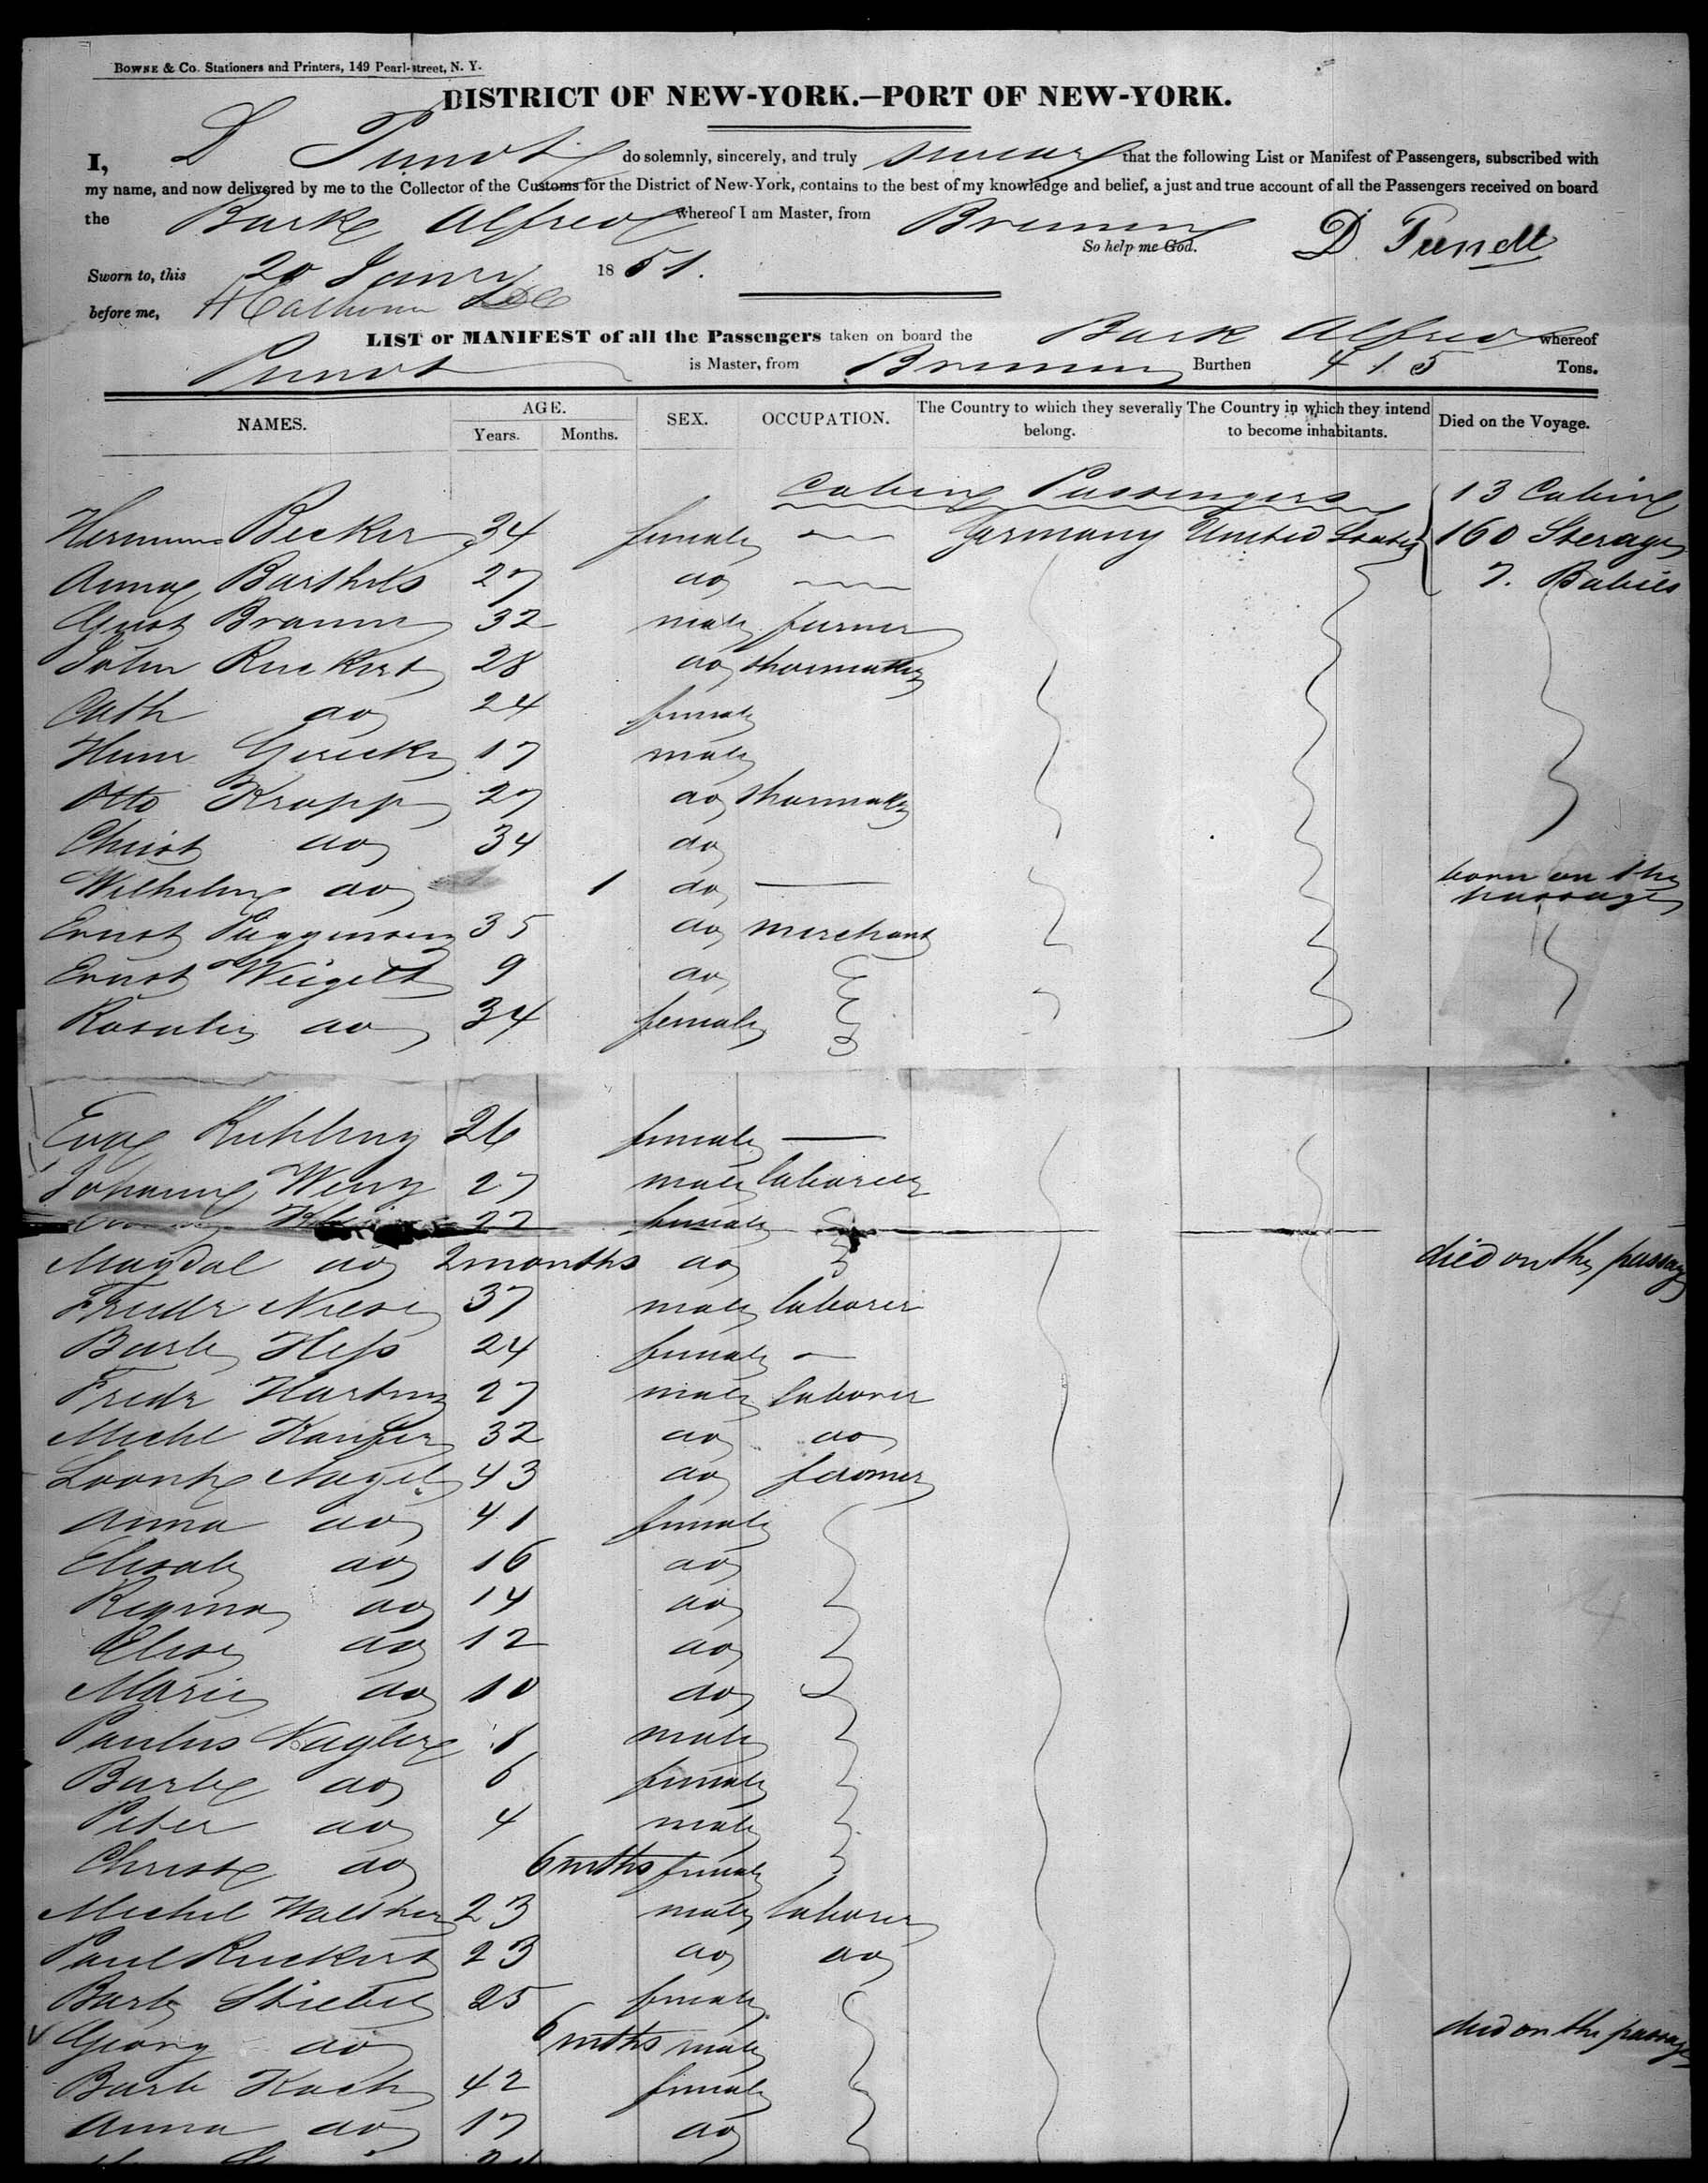 BOWNE & CO. Stationers and Printers, 149 Pearl-street, N. Y.
DISTRICT OF NEW-YORK.—PORT OF NEW-YORK.
I, D do solemnly, sincerely, and truly swear that the following List or Manifest of Passengers, subscribed with
my name, and now delivered by me to the Collector of the Customs for the District of New-York, contains to the best of my knowledge and belief, a just and true account of all the Passengers received on board
the Barke Alfred whereof I am Master, from Bremen
So help me God. D.
Sworn to, this 20 Janry 1851.
before me, Calhoun
LIST or MANIFEST of all the Passengers taken on board the Bark Alfred whereof
is Master, from Bremen Burthen 415 Tons.
NAMES. AGE. Years. Months. SEX. OCCUPATION. The Country to which they severally belong. The Country in which they intend to become inhabitants. Died on the Voyage.
Cabin Passengers 13 Cabin
Becker 34 female — Germany United States 160 Sterage
Anna Barthels 27 do — 7. Babies
32 male farmer
John Ruckert 28 do shoemaker
Cath do 24 female
17 male
Otto Krapp 27 do shoemaker
Christ do 34 do
Wilhelm do 1 do — born on the passage
Ernst 35 do merchant
Ernst Weigelt 9 do
Rosalie do 34 female
Eva 26 female —
27 male laborer
27 female
Magdal do 2 months do died on the passage
Friedr 37 male laborer
Barb Heſs 24 female —
Fredr 27 male laborer
Michl 32 do do
Nagel 43 do farmer
Anna do 41 female
Elisab do 16 do
Regina do 14 do
Elise do 12 do
Marie do 10 do
Paulus 8 male
Barb do 6 female
Peter do 4 male
Christ do 6 mths female
Michel Walther 23 male laborer
Paul Ruckert 23 do do
Barb 25 female
Georg do 6 mths male died on the passage
Barb Koch 42 female
Anna do 17 do